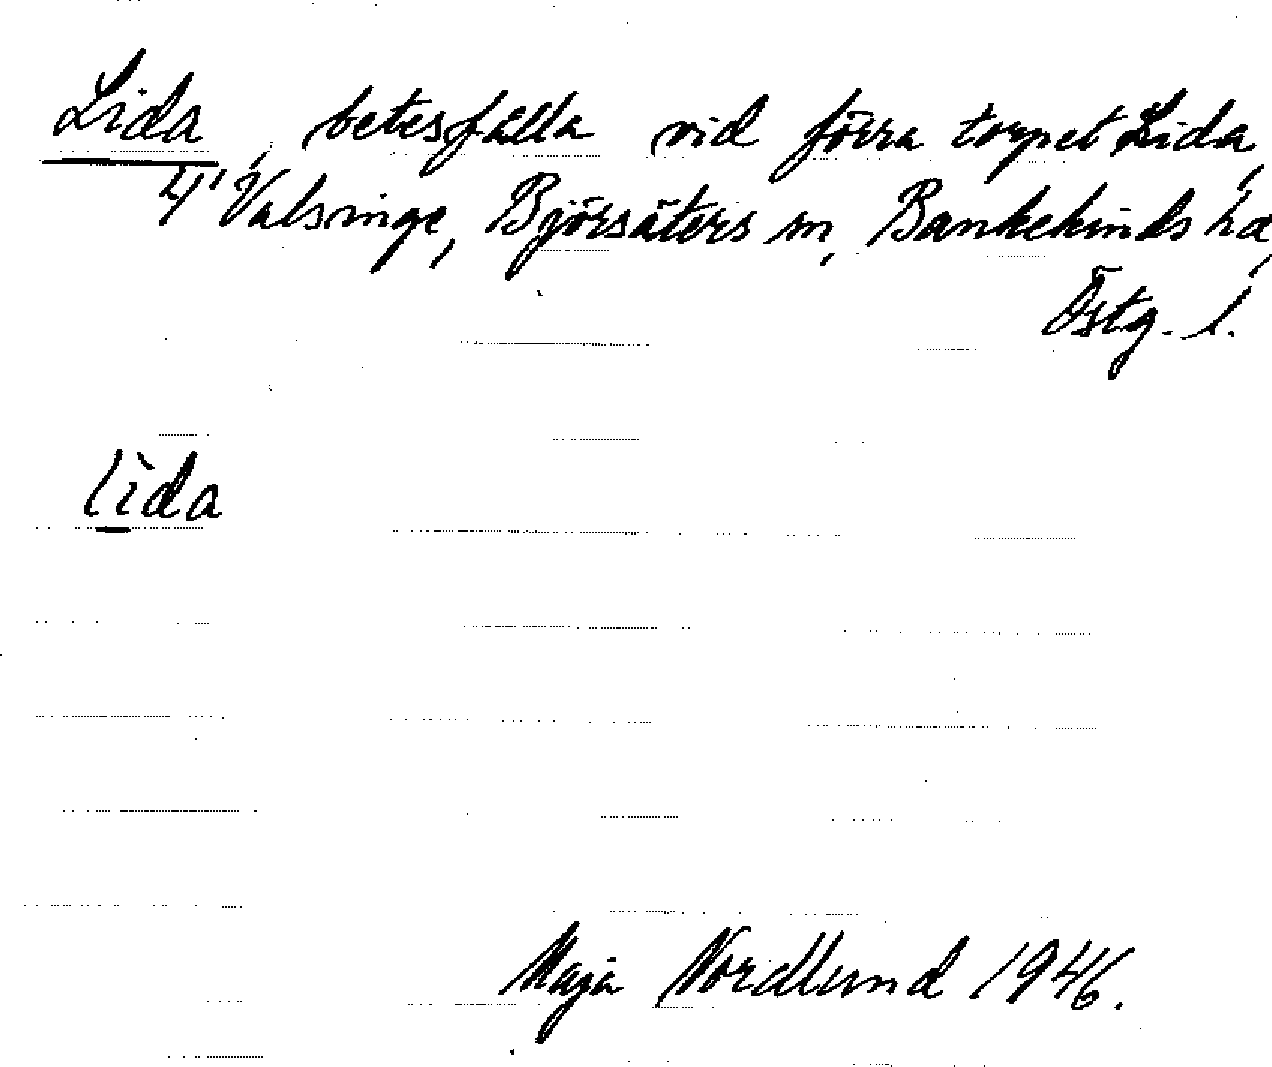 Lida, betesfålla vid förra torpet Lida,
4' Valsinge, Björsäters sn, Bankekinds hd,
Östg. l.
lìda
Maja Nordlund 1946.